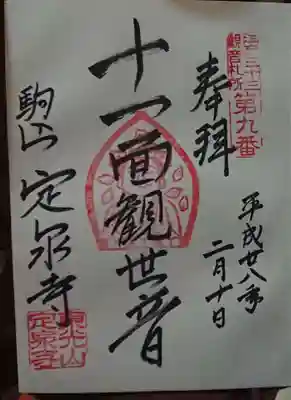 江戸三十三
観音札所
第九番
奉拝
平成廿八年
二月十日
十一面観世音
駒込 定泉寺
東光山
定泉寺